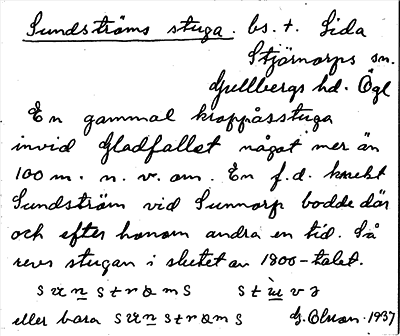 Sundströms stuga. bs. t. Sida
Stjärnorps sn.
Gullbergs hd. Ögl
En gammal kroppåsstuga
invid Gladfallet något mer än
100 m. n. v. om. En f.d. knekt
Sundström vid Sunnorp bodde där
och efter honom andra en tid. Så
revs stugan i slutet av 1800-talet.
eller bara
G. Olsson. 1937